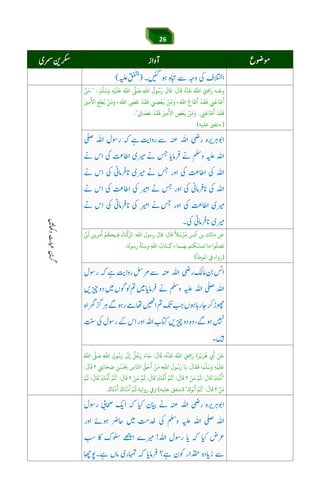 26
موضوع
آواز
سکرین سمری
اختلاف کی وجہ سے تباہ ہو گئیں۔ (متفق علیہ)
وَعَنْهُ رَضِيَ اللهُ عَنْهُ قَالَ: قَالَ رَسُولُ اللهِ صَلَّى اللهُ عَلَيْهِ وَسَلَّمَ : " مَنْ
أَطَاعَنِي فَقَدْ أَطَاعَ اللهَ، وَمَنْ يَعْصِنِي فَقَدْ عَصَى اللهَ، وَمَنْ يُطِعِ الْأَمِيرَ
فَقَدْ أَطَاعَنِي، وَمَنْ يَعْصِ الْأَمِيرَ فَقَدْ عَصَانِي".
(متفق عليه)
ابوہریرہ رضی اللہ عنہ سے روایت ہے کہ رسول اللہ صلی
اللہ علیہ وسلم نے فرمایا جس نے میری اطاعت کی اس نے
اللہ کی اطاعت کی اور جس نے میری نافرمانی کی اس نے
اللہ کی نافرمانی کی اور جس نے امیر کی اطاعت کی اس نے
میری اطاعت کی اور جس نے امیر کی نافرمانی کی اس نے
میری نافرمانی کی۔
عن مالك بن أنس مُرْسَلاً قال: قال رسول الله: تَرَكْتُ فيكم أمرين لَنْ
تَضِلُّوا ما تمسكتم بهما : كتابُ اللهِ وسنةُ رسوله.
(رواه في الموطأ)
انس بن مالک رضی اللہ عنہ سے مرسل روایت ہے کہ رسول
اللہ صلی اللہ علیہ وسلم نے فرمایا میں تم لوگوں میں دو چیزیں
چھوڑ کر جا رہا ہوں جب تک تم انھیں تھامے رہو گے ہر گز گمراہ
نہیں ہو گے، وہ دو چیزیں کتاب اللہ اور اس کے رسول کی سنت
ہیں۔
عَنْ أَبِي هُرَيْرَةَ رَضِيَ اللهُ عَنْهُ قَالَ: جَاءَ رَجُلٌ إِلَى رَسُولِ اللهِ صَلَّى اللهُ
عَلَيْهِ وَسَلَّمَ، فَقَالَ: يَا رَسُولَ اللهِ مَنْ أَحَقُّ النَّاسِ بِحُسْنِ صَحَابَتِي ؟ قَالَ:
أُمُّكَ قَالَ: ثُمَّ مَنْ ؟ قَالَ: ثُمَّ أُمُّكَ قَالَ: ثُمَّ مَنْ ؟ قَالَ: ثُمَّ أُمُّكَ قَالَ: ثُمَّ
مَنْ ؟ قَالَ: ثُمَّ أَبُوكَ" (متفق عليه)
ابوہریرہ رضی اللہ عنہ نے بیان کیا کہ ایک صحابی رسول
اللہ صلی اللہ علیہ وسلم کی خدمت میں حاضر ہوئے اور
عرض کیا کہ یا رسول اللہ! میرے اچھے سلوک کا سب
سے زیادہ حقدار کون ہے؟ فرمایا کہ تمہاری ماں ہے۔ پوچھا